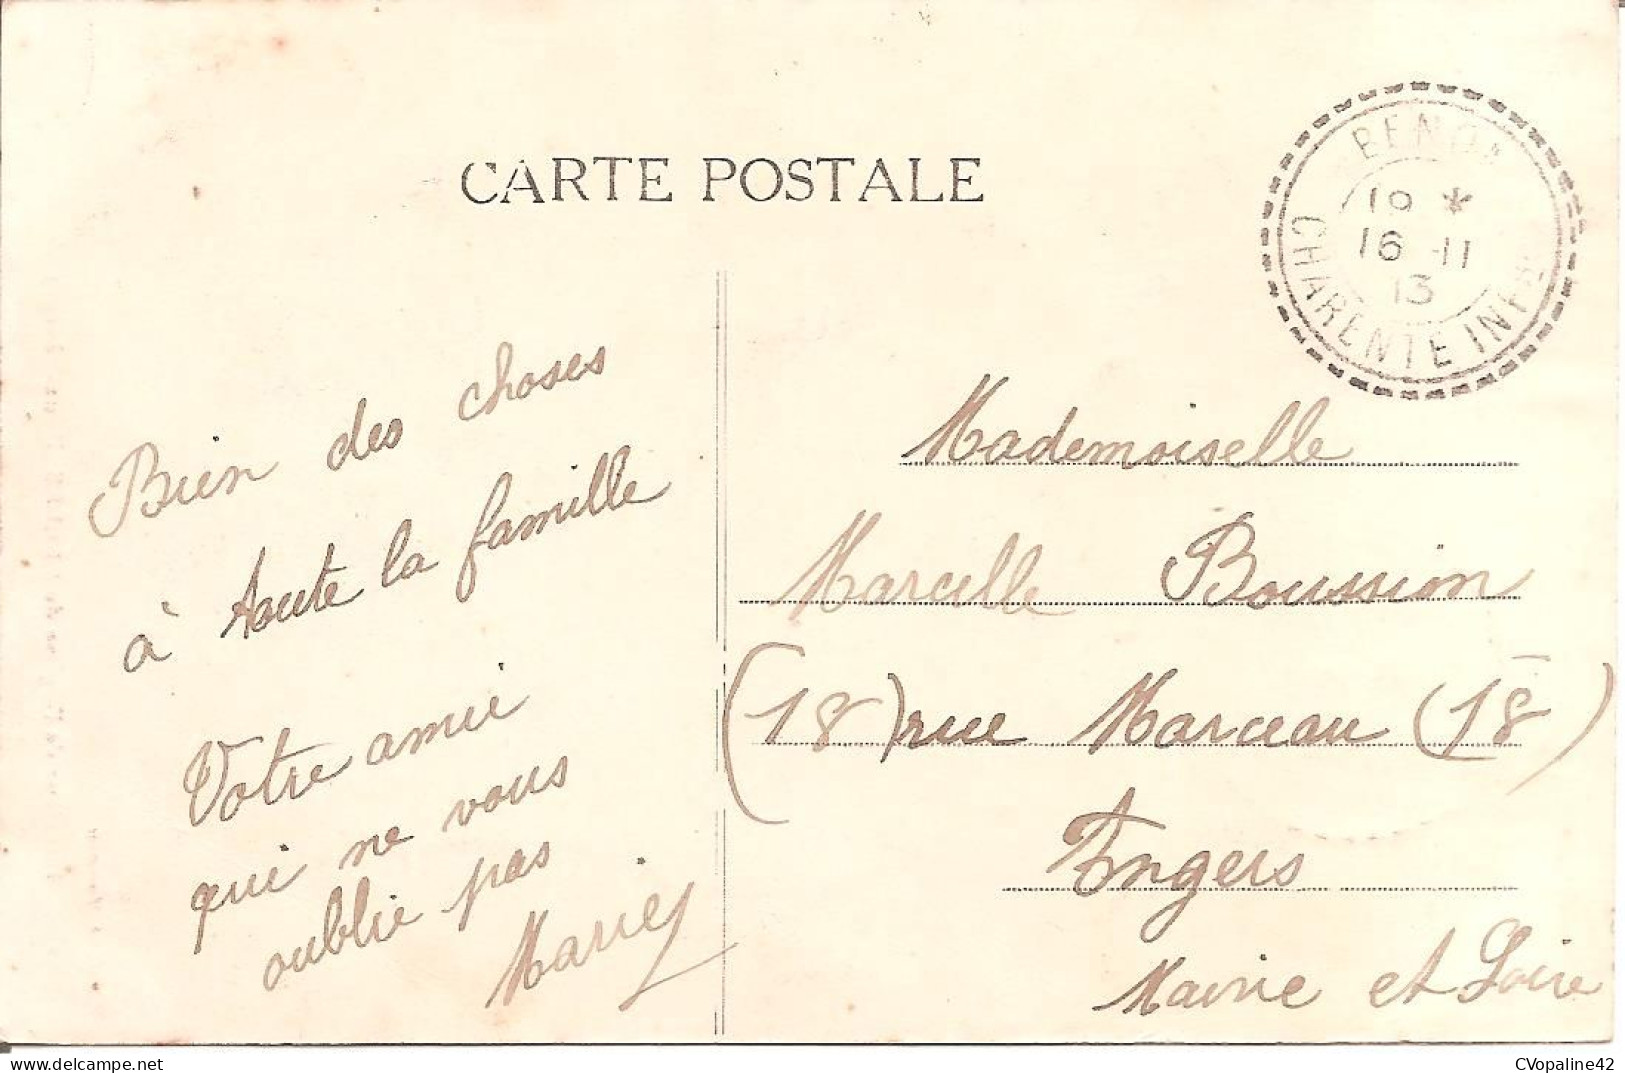 CARTE POSTALE
BENON
19 *
16 11
13
CHARENTE INFRE
Bien des choses
à toute la famille
Votre amie
qui ne vous
oublie pas
Marie
Mademoiselle
Marcelle Boussion
(18) rue Marceau (18)
Angers
Maine et Loire
CVopaline42